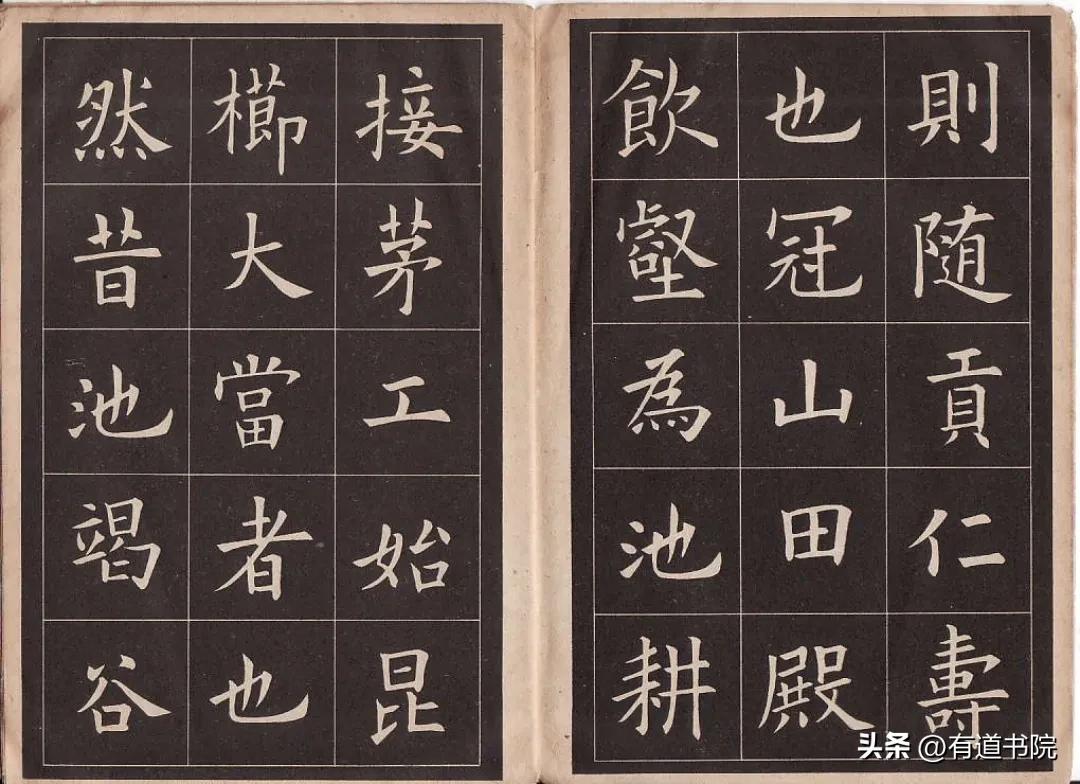 則随貢仁壽
也冠山田殿
飲壑為池耕
接茅工始昆
櫛大當者也
然昔池竭谷
头条 @有道书院